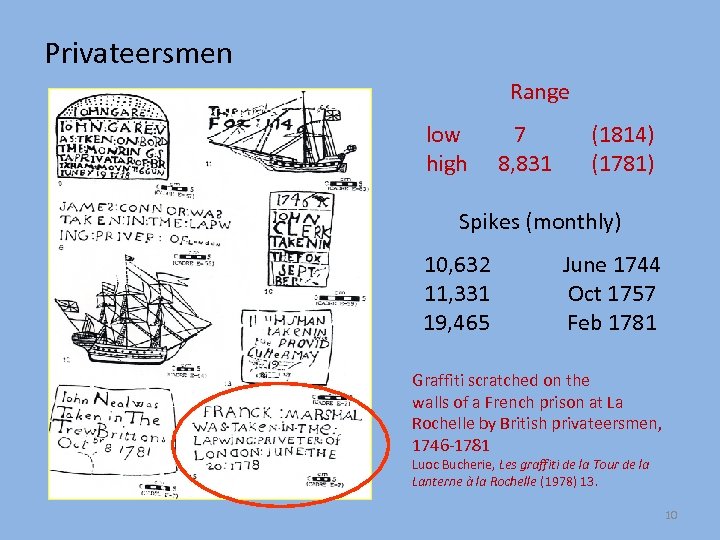 Privateersmen
Range
low 7 (1814)
high 8,831 (1781)
Spikes (monthly)
10,632 June 1744
11,331 Oct 1757
19,465 Feb 1781
Graffiti scratched on the
walls of a French prison at La
Rochelle by British privateersmen,
1746-1781
Luoc Bucherie, Les graffiti de la Tour de la
Lanterne à la Rochelle (1978) 13.
10
IOHNGARE
IOHN.GARE.V
AS.TKEN.ON.BOR
THE
FOX 1746
11
JAMES:CONNOR:WAS
TAKEN:IN:THE:LAPW
ING:PRIVER:OF LONDON
1746
IOHN
CLERK
TAKEN IN
THE FOX
SEPT
BER
TAKEN IN
THE PROVID
MAY
1778
John Neal was
Taken in The
Trew Brittons
Octbr 8 1781
FRANCK:MARSHAL
WAS:TAKEN:IN:THE:
LAPWING:PRIVETER:OF
LONDON:JUNE:THE
20:1778